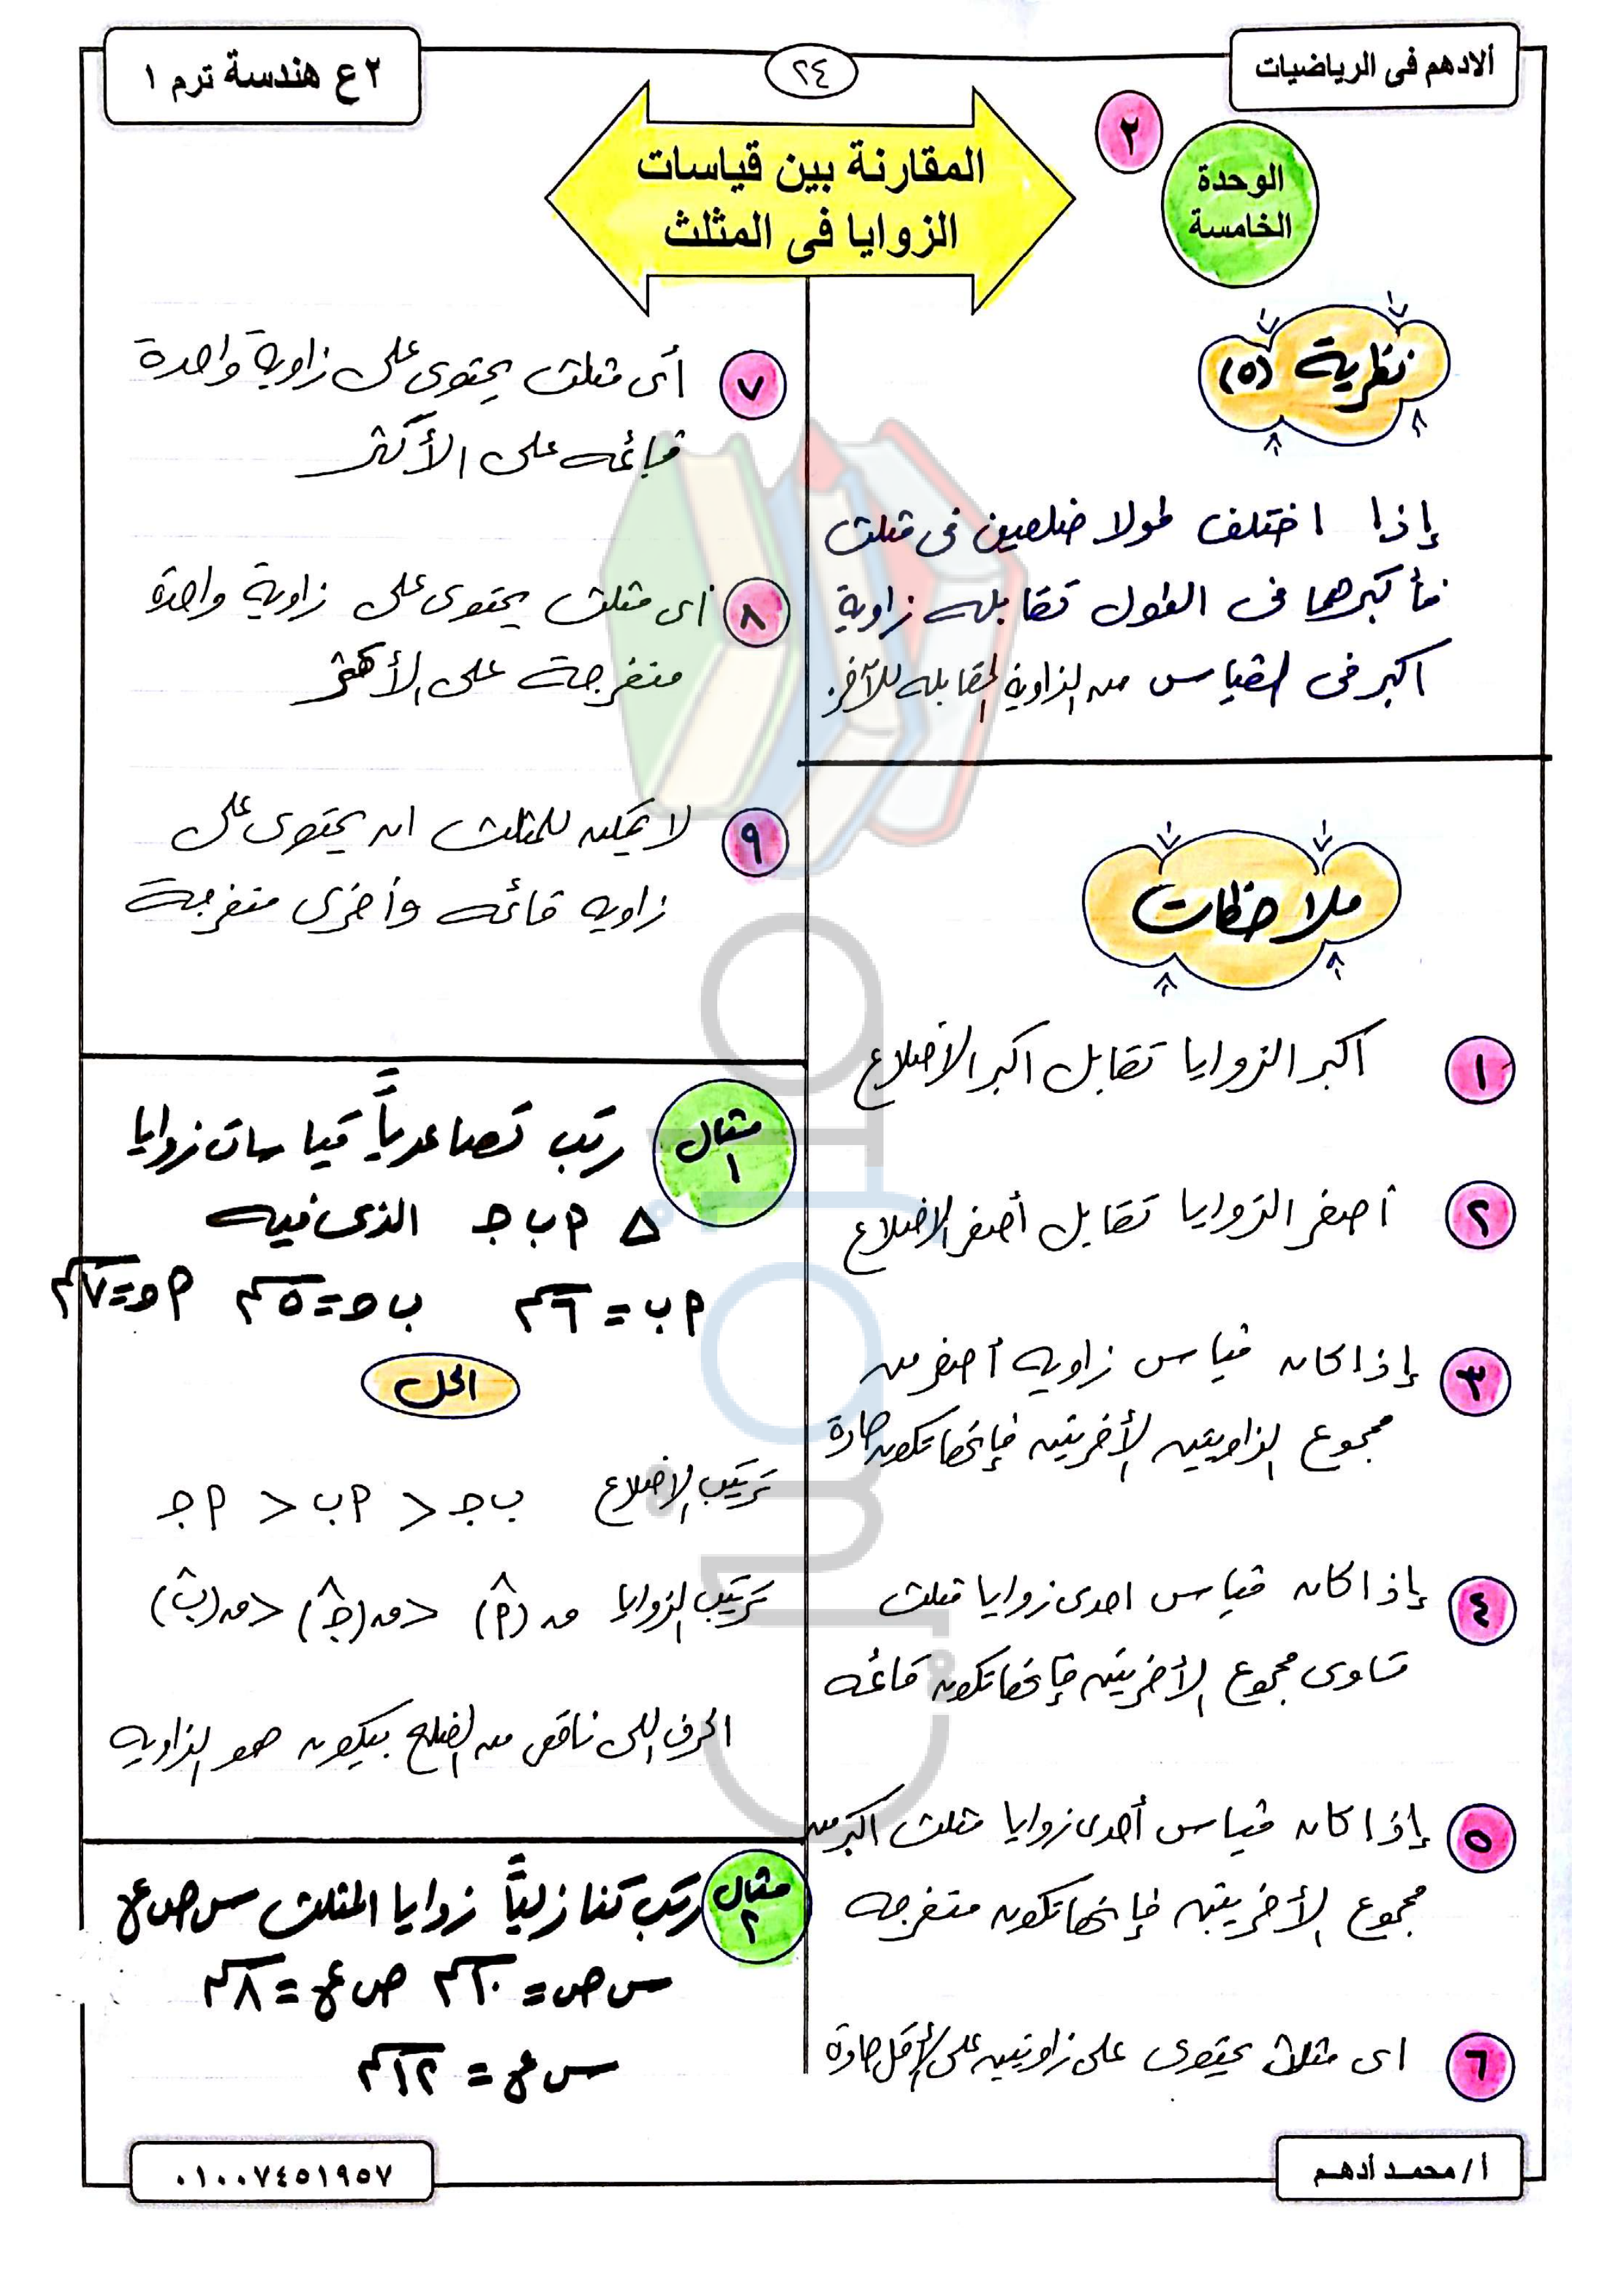 الادهم فى الرياضيات
٢٤
٢ع هندسة ترم ١
٢
الوحدة
الخامسة
المقارنة بين قياسات
الزوايا فى المثلث
نظرية (٥)
إذا اختلف طولا ضلعين فى مثلث
فأكبرهما فى الطول تقابله زاوية
اكبر فى القياس من الزاوية المقابله للآخر.
ملاحظات
١ اكبر الزوايا تقابل اكبر الأضلاع
٢ أصغر الزوايا تقابل أصغر الاضلاع
٣ إذا كان قياس زاويه أصغر من
مجموع الزاويتين الأخريتين فإنها تكون حادة
٤ إذا كان قياس احدى زوايا مثلث
تساوى مجموع الأخريتين فإنها تكون قائمه
٥ إذا كان قياس أحدى زوايا مثلث اكبر من
مجموع الأخريتين فإنها تكون منفرجه
٦ اى مثلث يحتوى على زاويتين على الأقل حادة
٧ أى مثلث يحتوى على زاوية واحدة
قائمه على الأكثر
٨ أى مثلث يحتوى على زاوية واحدة
منفرجة على الأكثر
٩ لا يمكن للمثلث ان يحتوى على
زاويه قائمه وأخرى منفرجة
مثال ١ رتب تصاعدياً قياسات زوايا
∆ ٢ ب جـ الذى فيه
٢ ب = ٦سم ب جـ = ٥سم ٢ جـ = ٧سم
الحل
ترتيب الاضلاع ب جـ < ٢ ب < ٢ جـ
ترتيب الزوايا ق (٢^) < ق (جـ^) < ق (ب^)
الحرف اللى ناقص من الضلع بيكون هو الزاويه
مثال ٢ رتب تنازلياً زوايا المثلث س ص ع
س ص = ١٠سم ص ع = ٨سم
س ع = ١٢سم
أ / محمد أدهم
٠١٠٠٧٤٥١٩٥٧